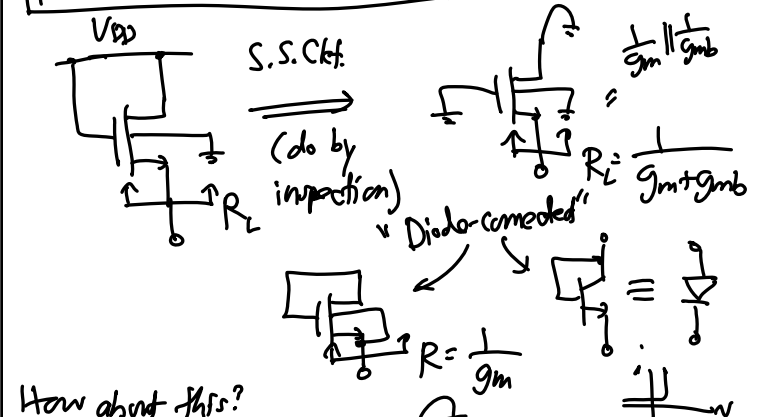 VDD
S.S. Ckt.
(do by
inspection)
RL
1/gm || 1/gmb
=
RL = 1/(gm+gmb)
"Diode-connected"
R = 1/gm
≡
How about this?